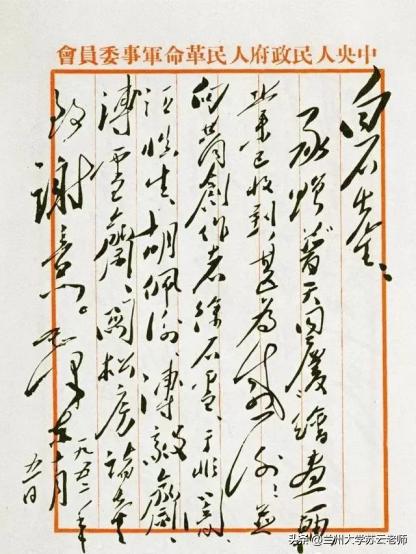 中央人民政府人民革命軍事委員會
白石先生：
承贈“普天同慶”繪畫一軸
業已收到，甚為感謝！並
向共同創作者徐石雪、于非闇、
汪慎生、胡佩衡、溥毅齋、
溥雪齋、關松房諸先生
致謝意。毛澤東
一九五二年
十月五日
头条@兰州大学苏云老师